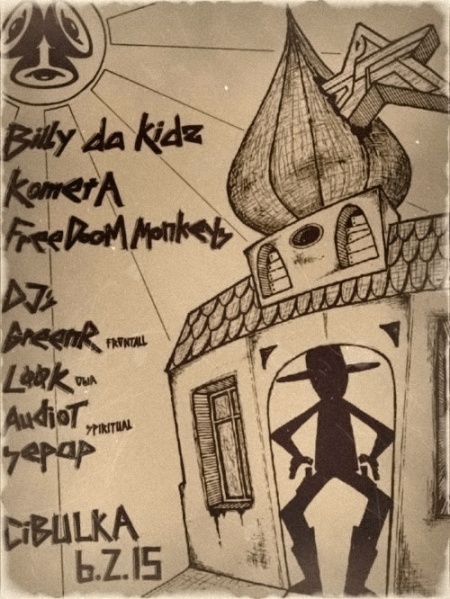 Billy da Kidz
KometA
FreeDooM Monkeys
DJs
GreenR FRONTALL
LooK OWA
AudioT SPIRITUAL
sepap
CiBULKA
6.2.15